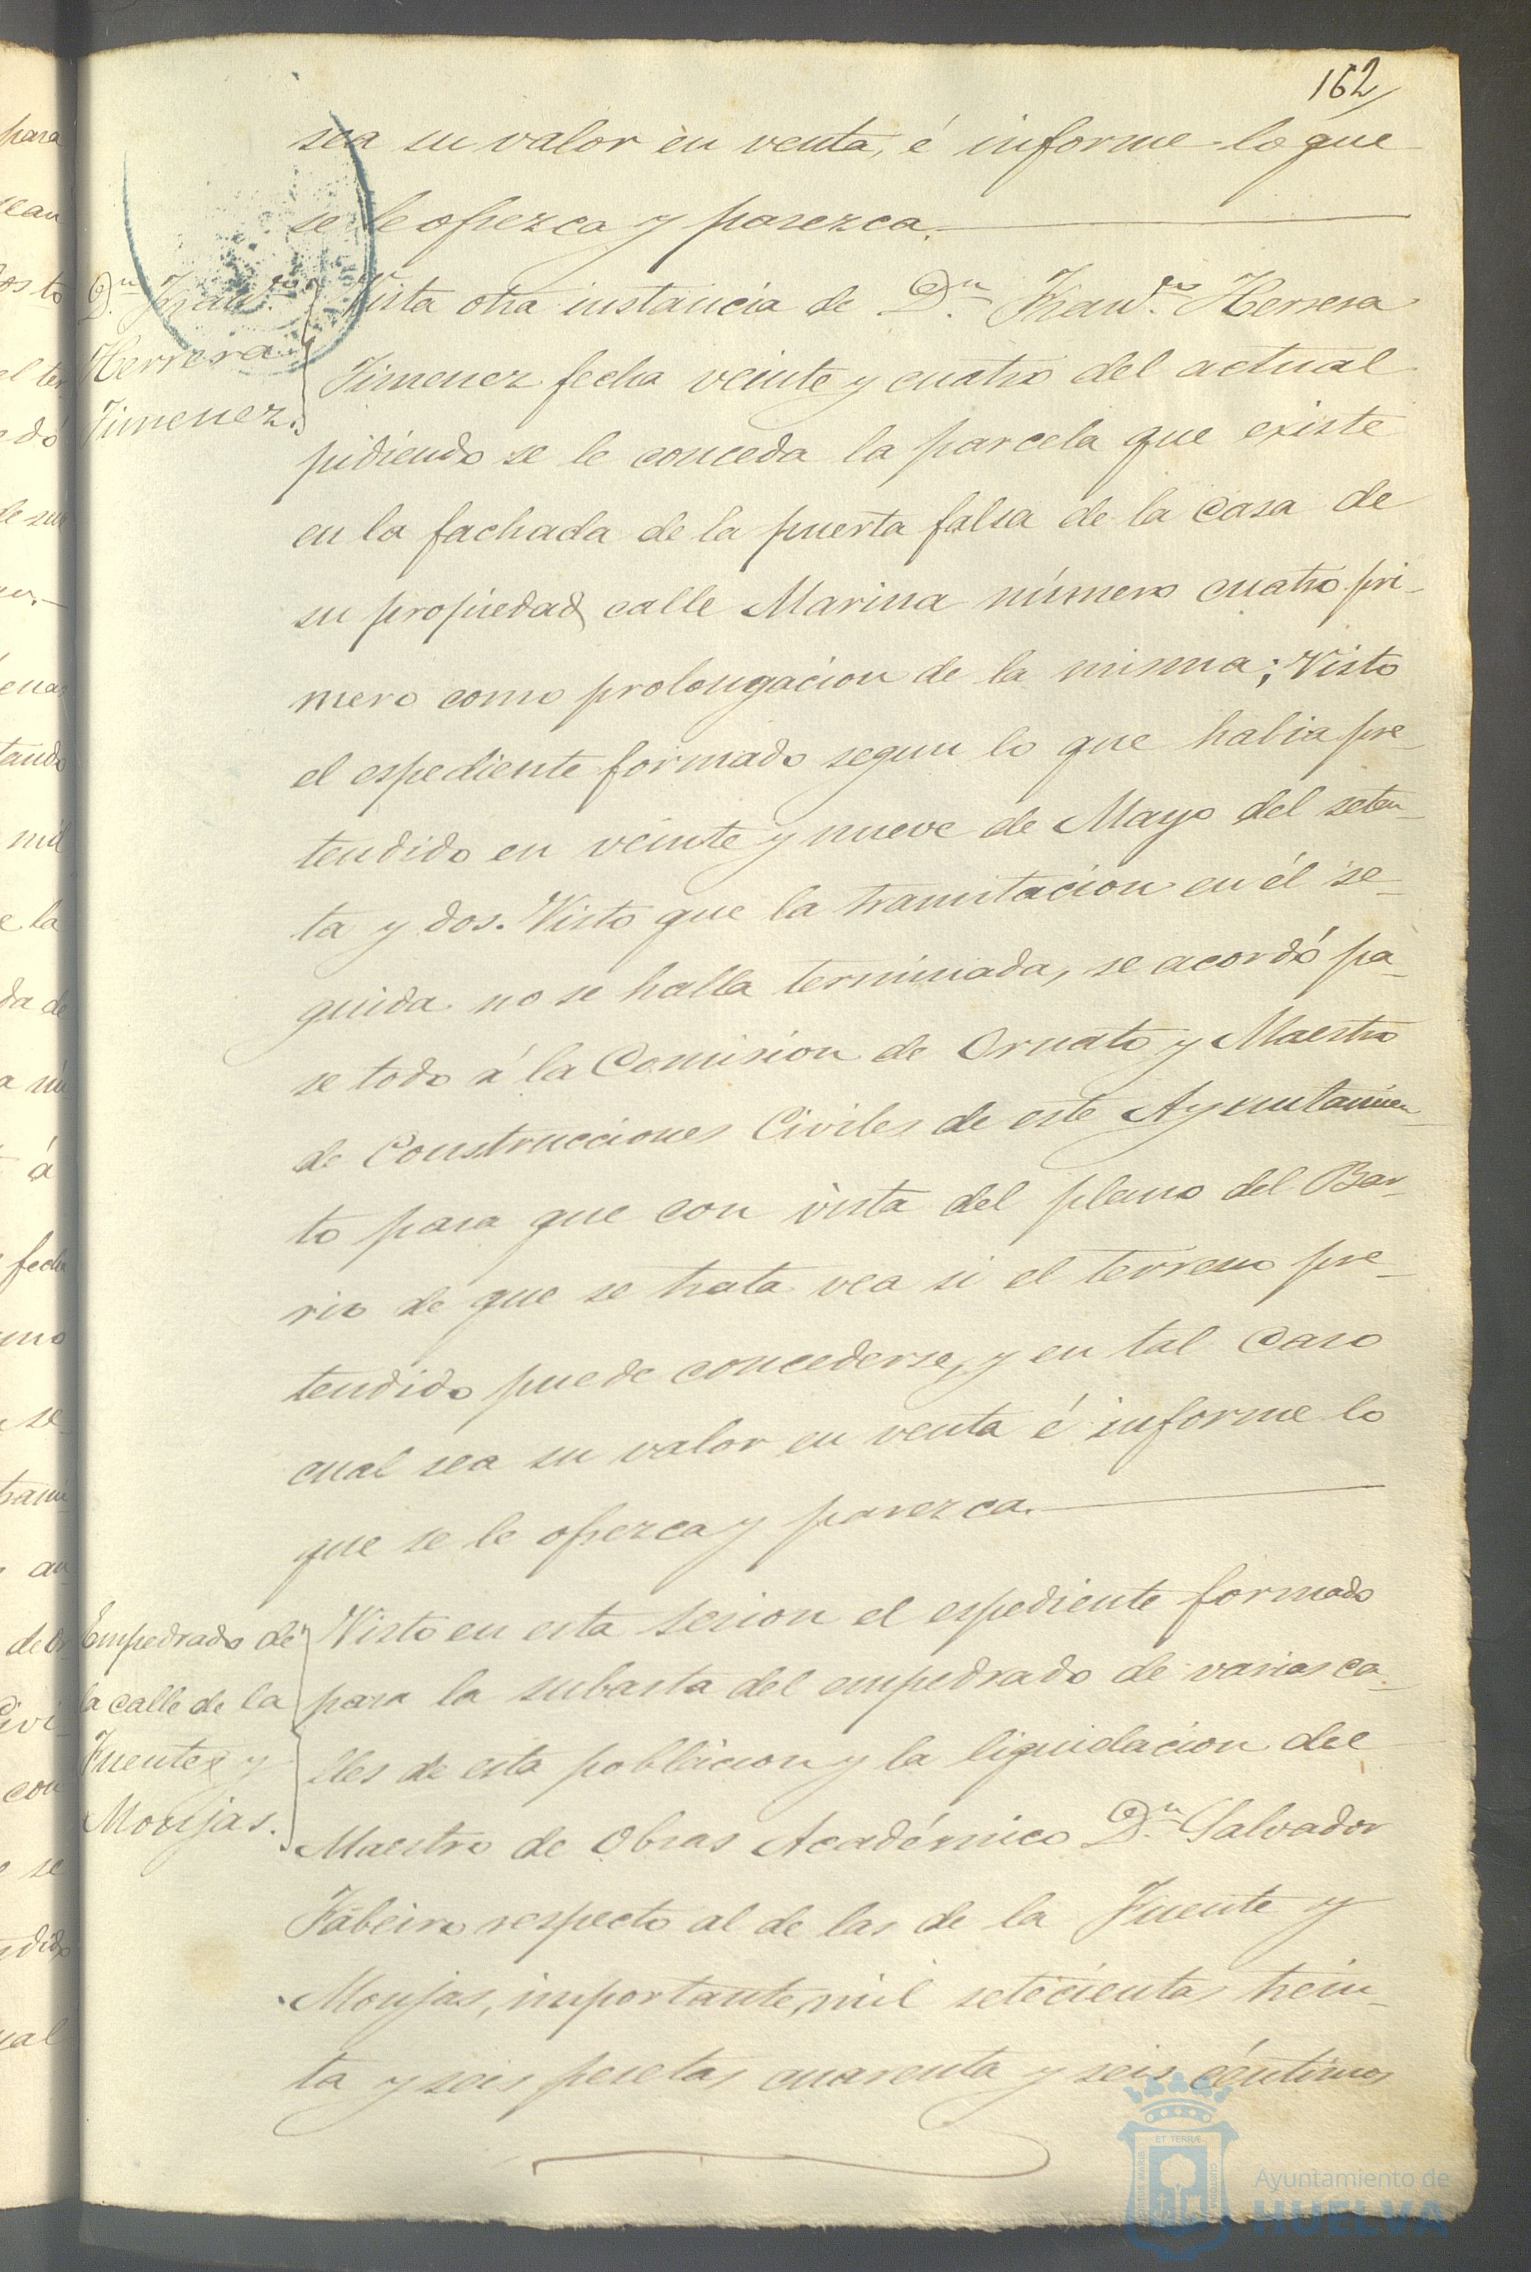 162
sea su valor en venta, é informe lo que
se le ofrezca y parezca.
D.n Fran.co
Herrera
Jimenez.
Vista otra instancia de D.n Fran.co Herrera
Jimenez fecha veinte y cuatro del actual
pidiendo se le conceda la parcela que existe
en la fachada de la puerta falsa de la casa de
su propiedad calle Marina número cuatro pri-
mero como prolongacion de la misma; Visto
el espediente formado segun lo que habia pre-
tendido en veinte y nueve de Mayo del seten-
ta y dos. Visto que la tramitacion en él se-
guida no se halla terminada, se acordó pa-
se todo á la Comision de Ornato y Maestro
de Construcciones Civiles de este Ayuntamien-
to para que con vista del plano del Bar-
rio de que se trata vea si el terreno pre-
tendido puede concederse, y en tal caso
cual sea su valor en venta é informe lo
que se le ofrezca y parezca.
Empedrado de
la calle de la
Fuente y
Monjas.
Visto en esta sesion el espediente formado
para la subasta del empedrado de varias ca-
lles de esta poblacion y la liquidacion del
Maestro de Obras Académico D.n Salvador
Fabeiro respecto al de las de la Fuente y
Monjas, importante mil setecientas trein-
ta y seis pesetas cuarenta y seis céntimos
Ayuntamiento de
HUELVA